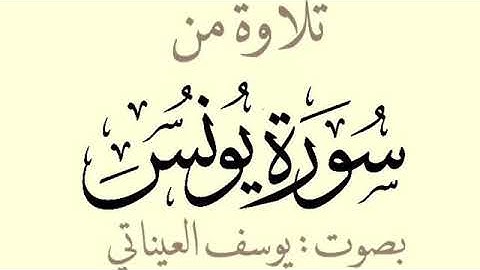 تلاوة من
سُورَة يُونُس
بصوت : يوسف العيناتي